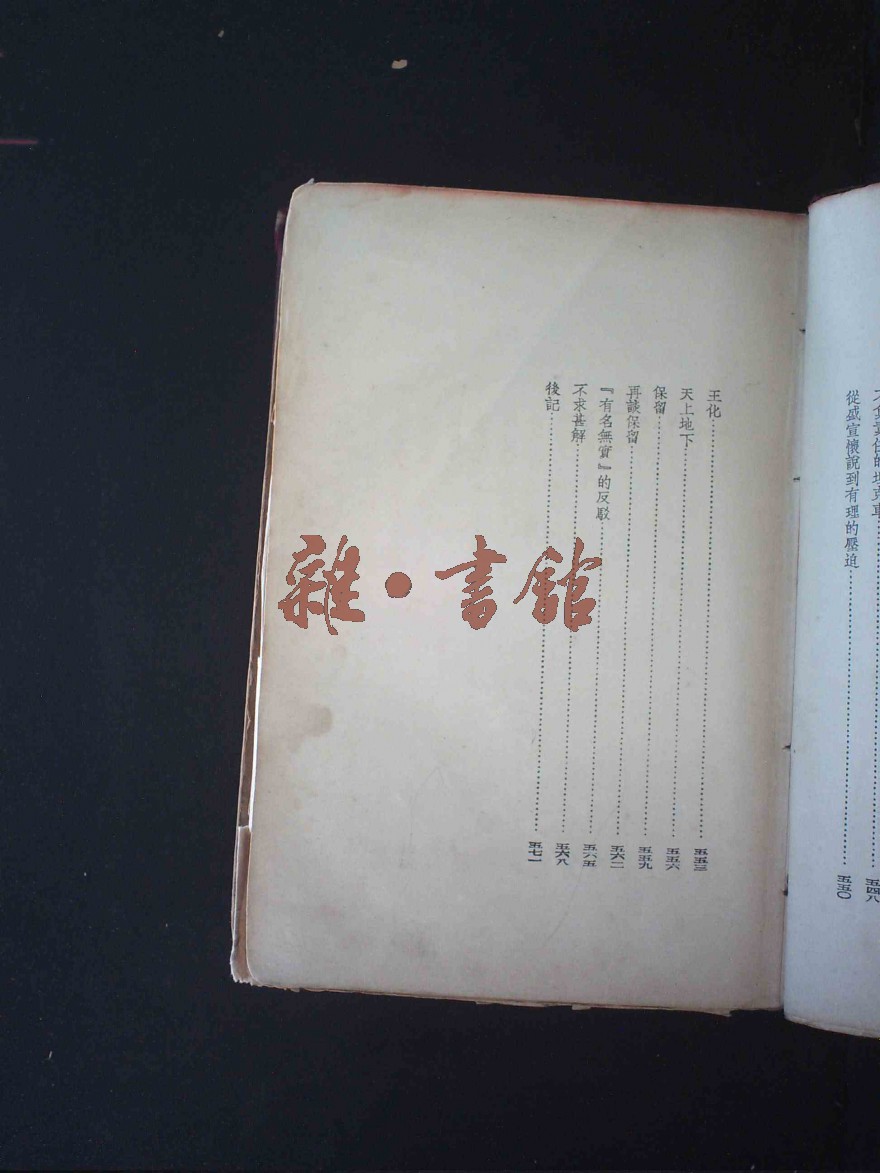 從盛宣懷說到有理的壓迫……五五〇
王化……五五三
天上地下……五五六
保留……五五九
再談保留……五六二
『有名無實』的反駁……五六五
不求甚解……五六八
後記……五七一
雜·書館